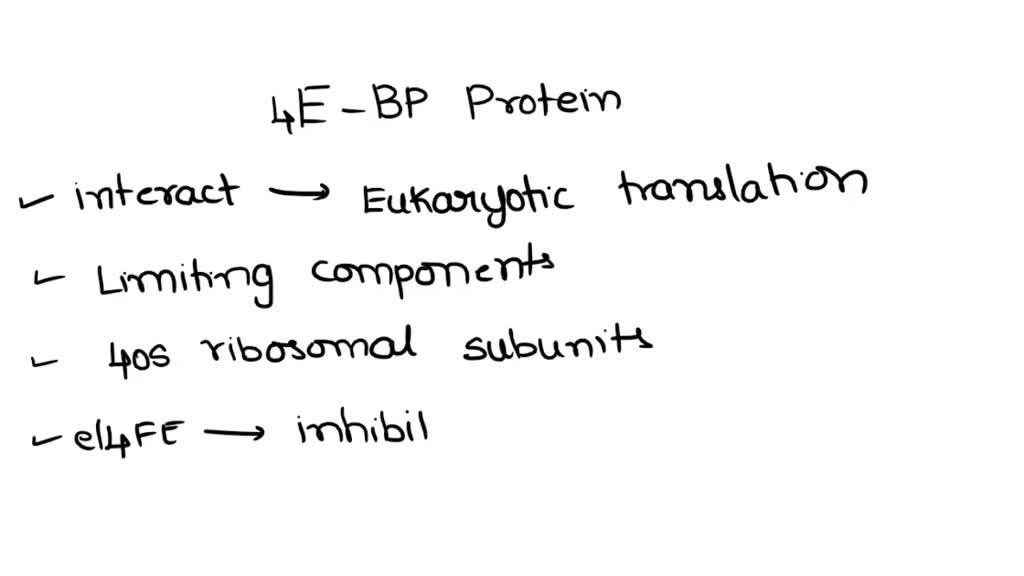 4E-BP Protein
✓ interact → Eukaryotic translation
✓ Limiting components
✓ 40s ribosomal subunits
✓ eI4FE → inhibil